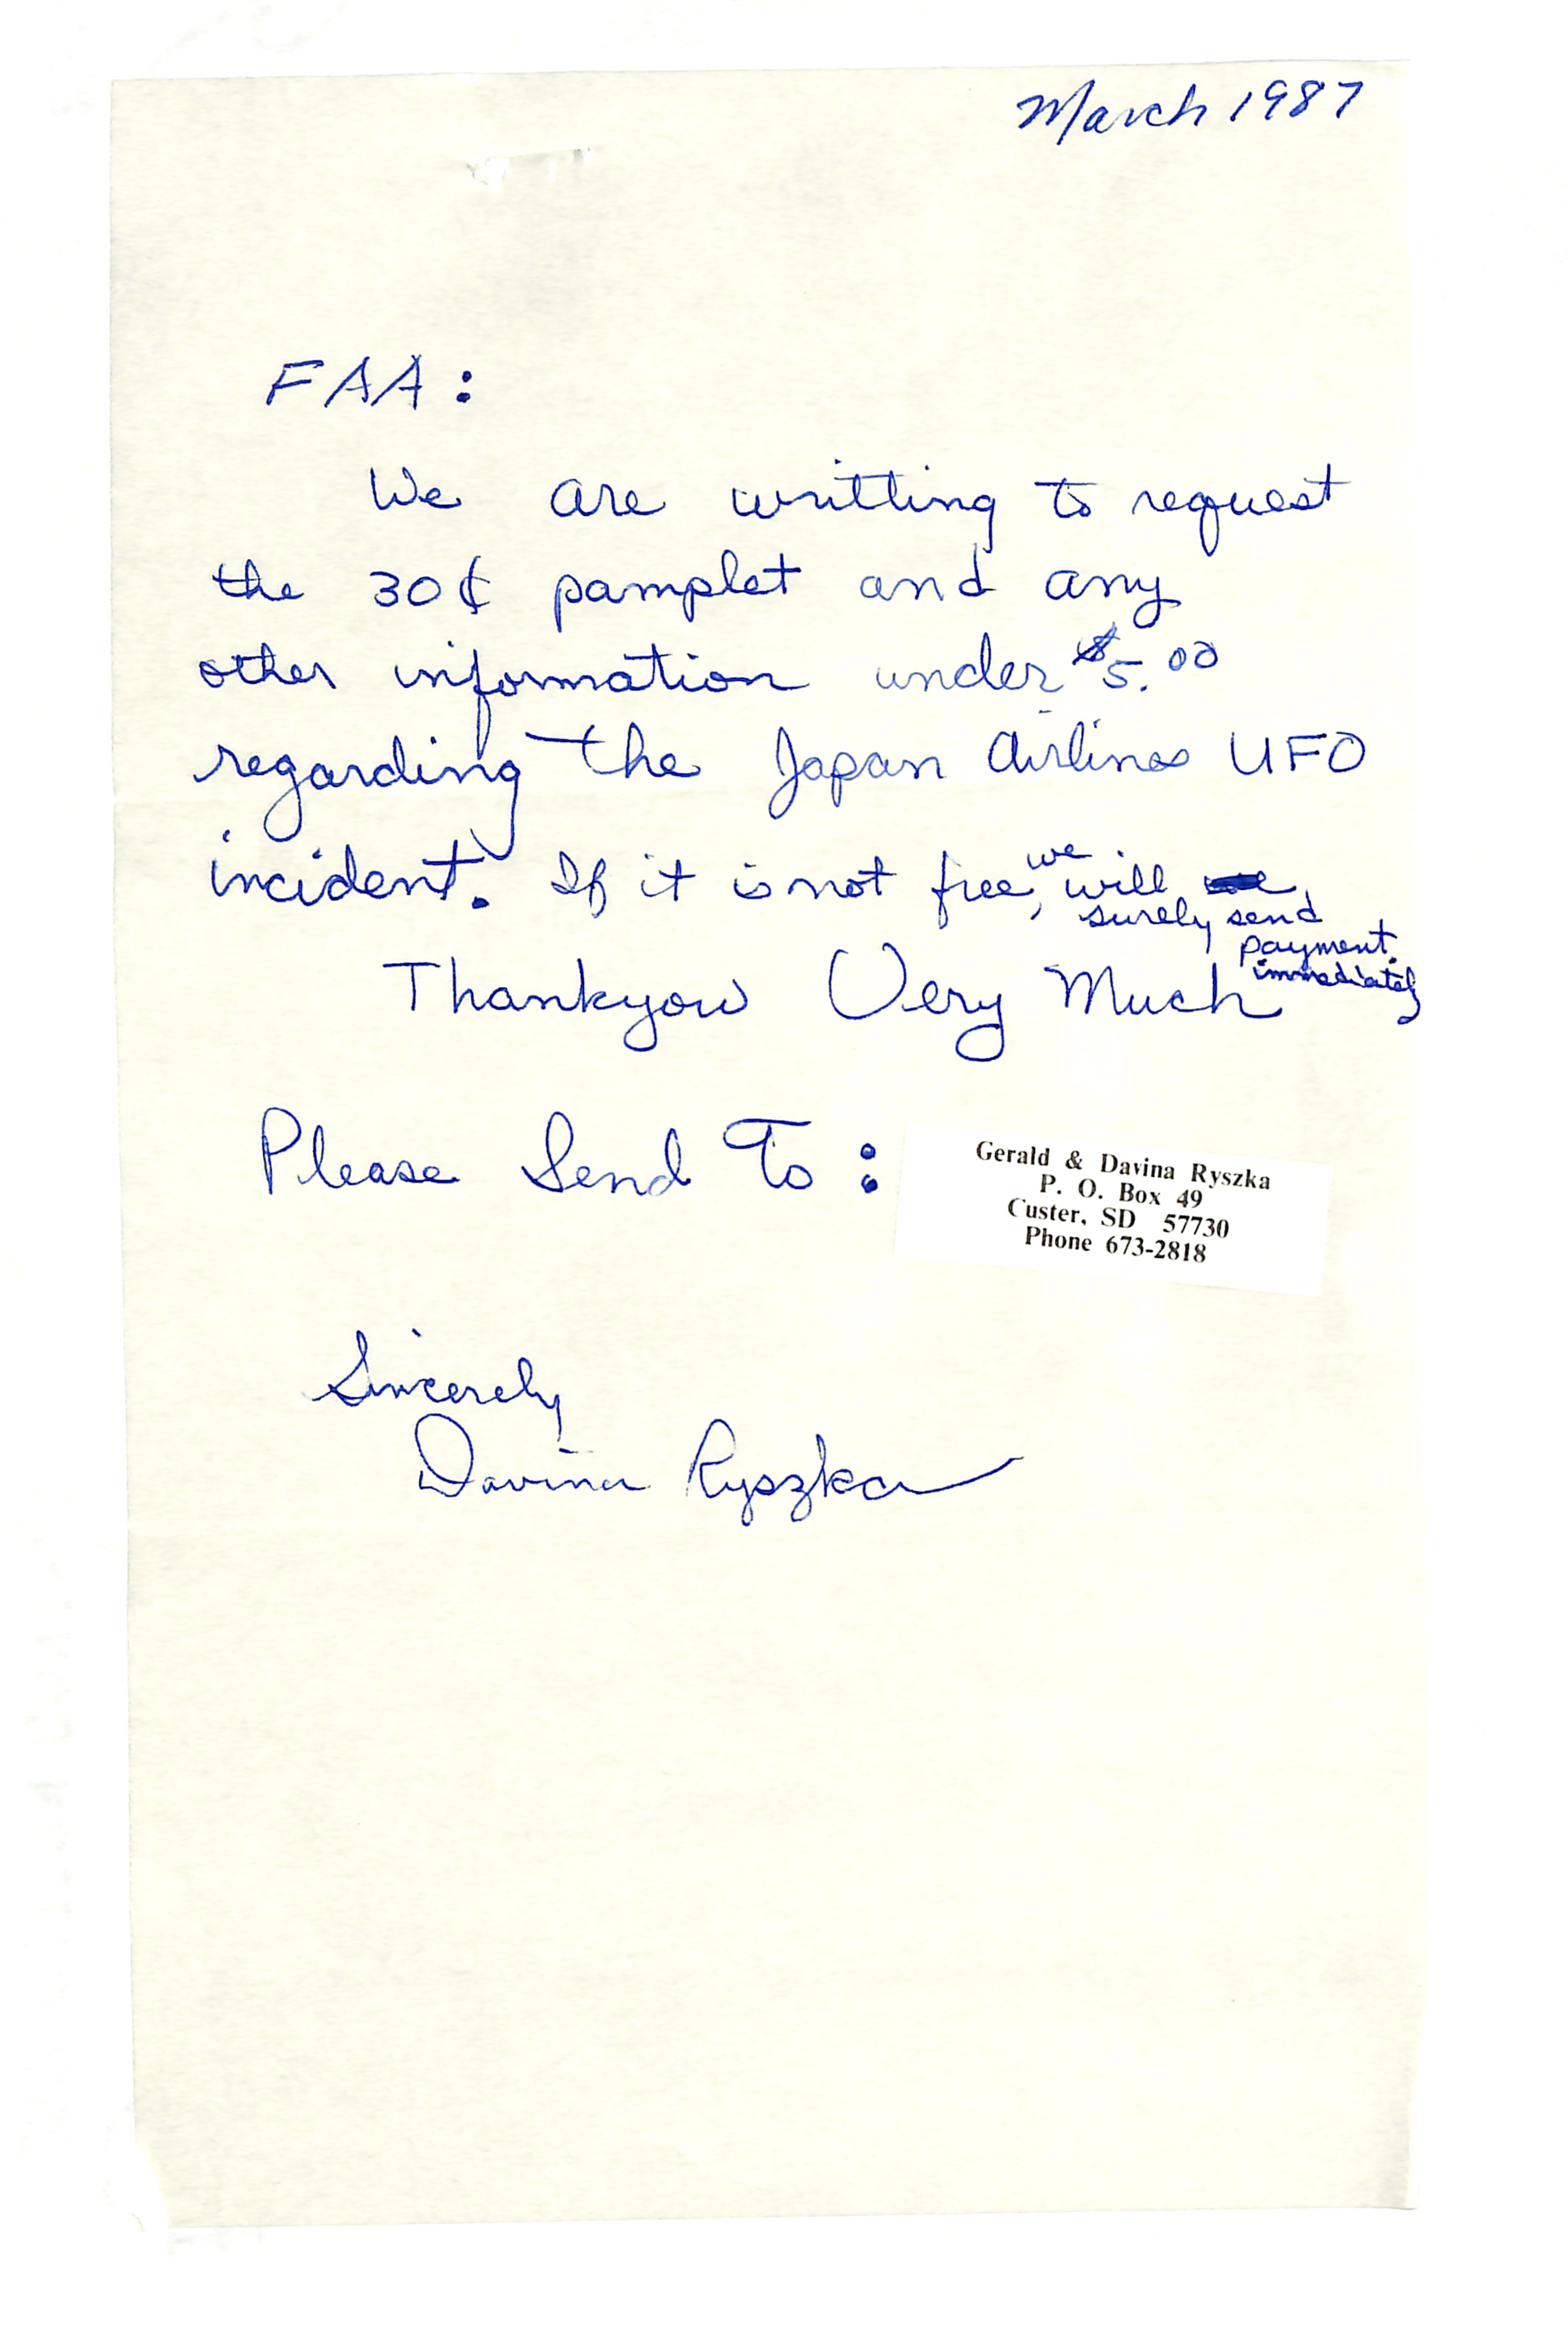 March 1987
FAA:
We are writting to request
the 30¢ pamplet and any
other information under $5.00
regarding the Japan Airlines UFO
incident. If it is not free, we will
surely send
payment
immediately
Thankyou Very Much
Please Send To:
Gerald & Davina Ryszka
P. O. Box 49
Custer, SD 57730
Phone 673-2818
Sincerely
Davina Ryszka